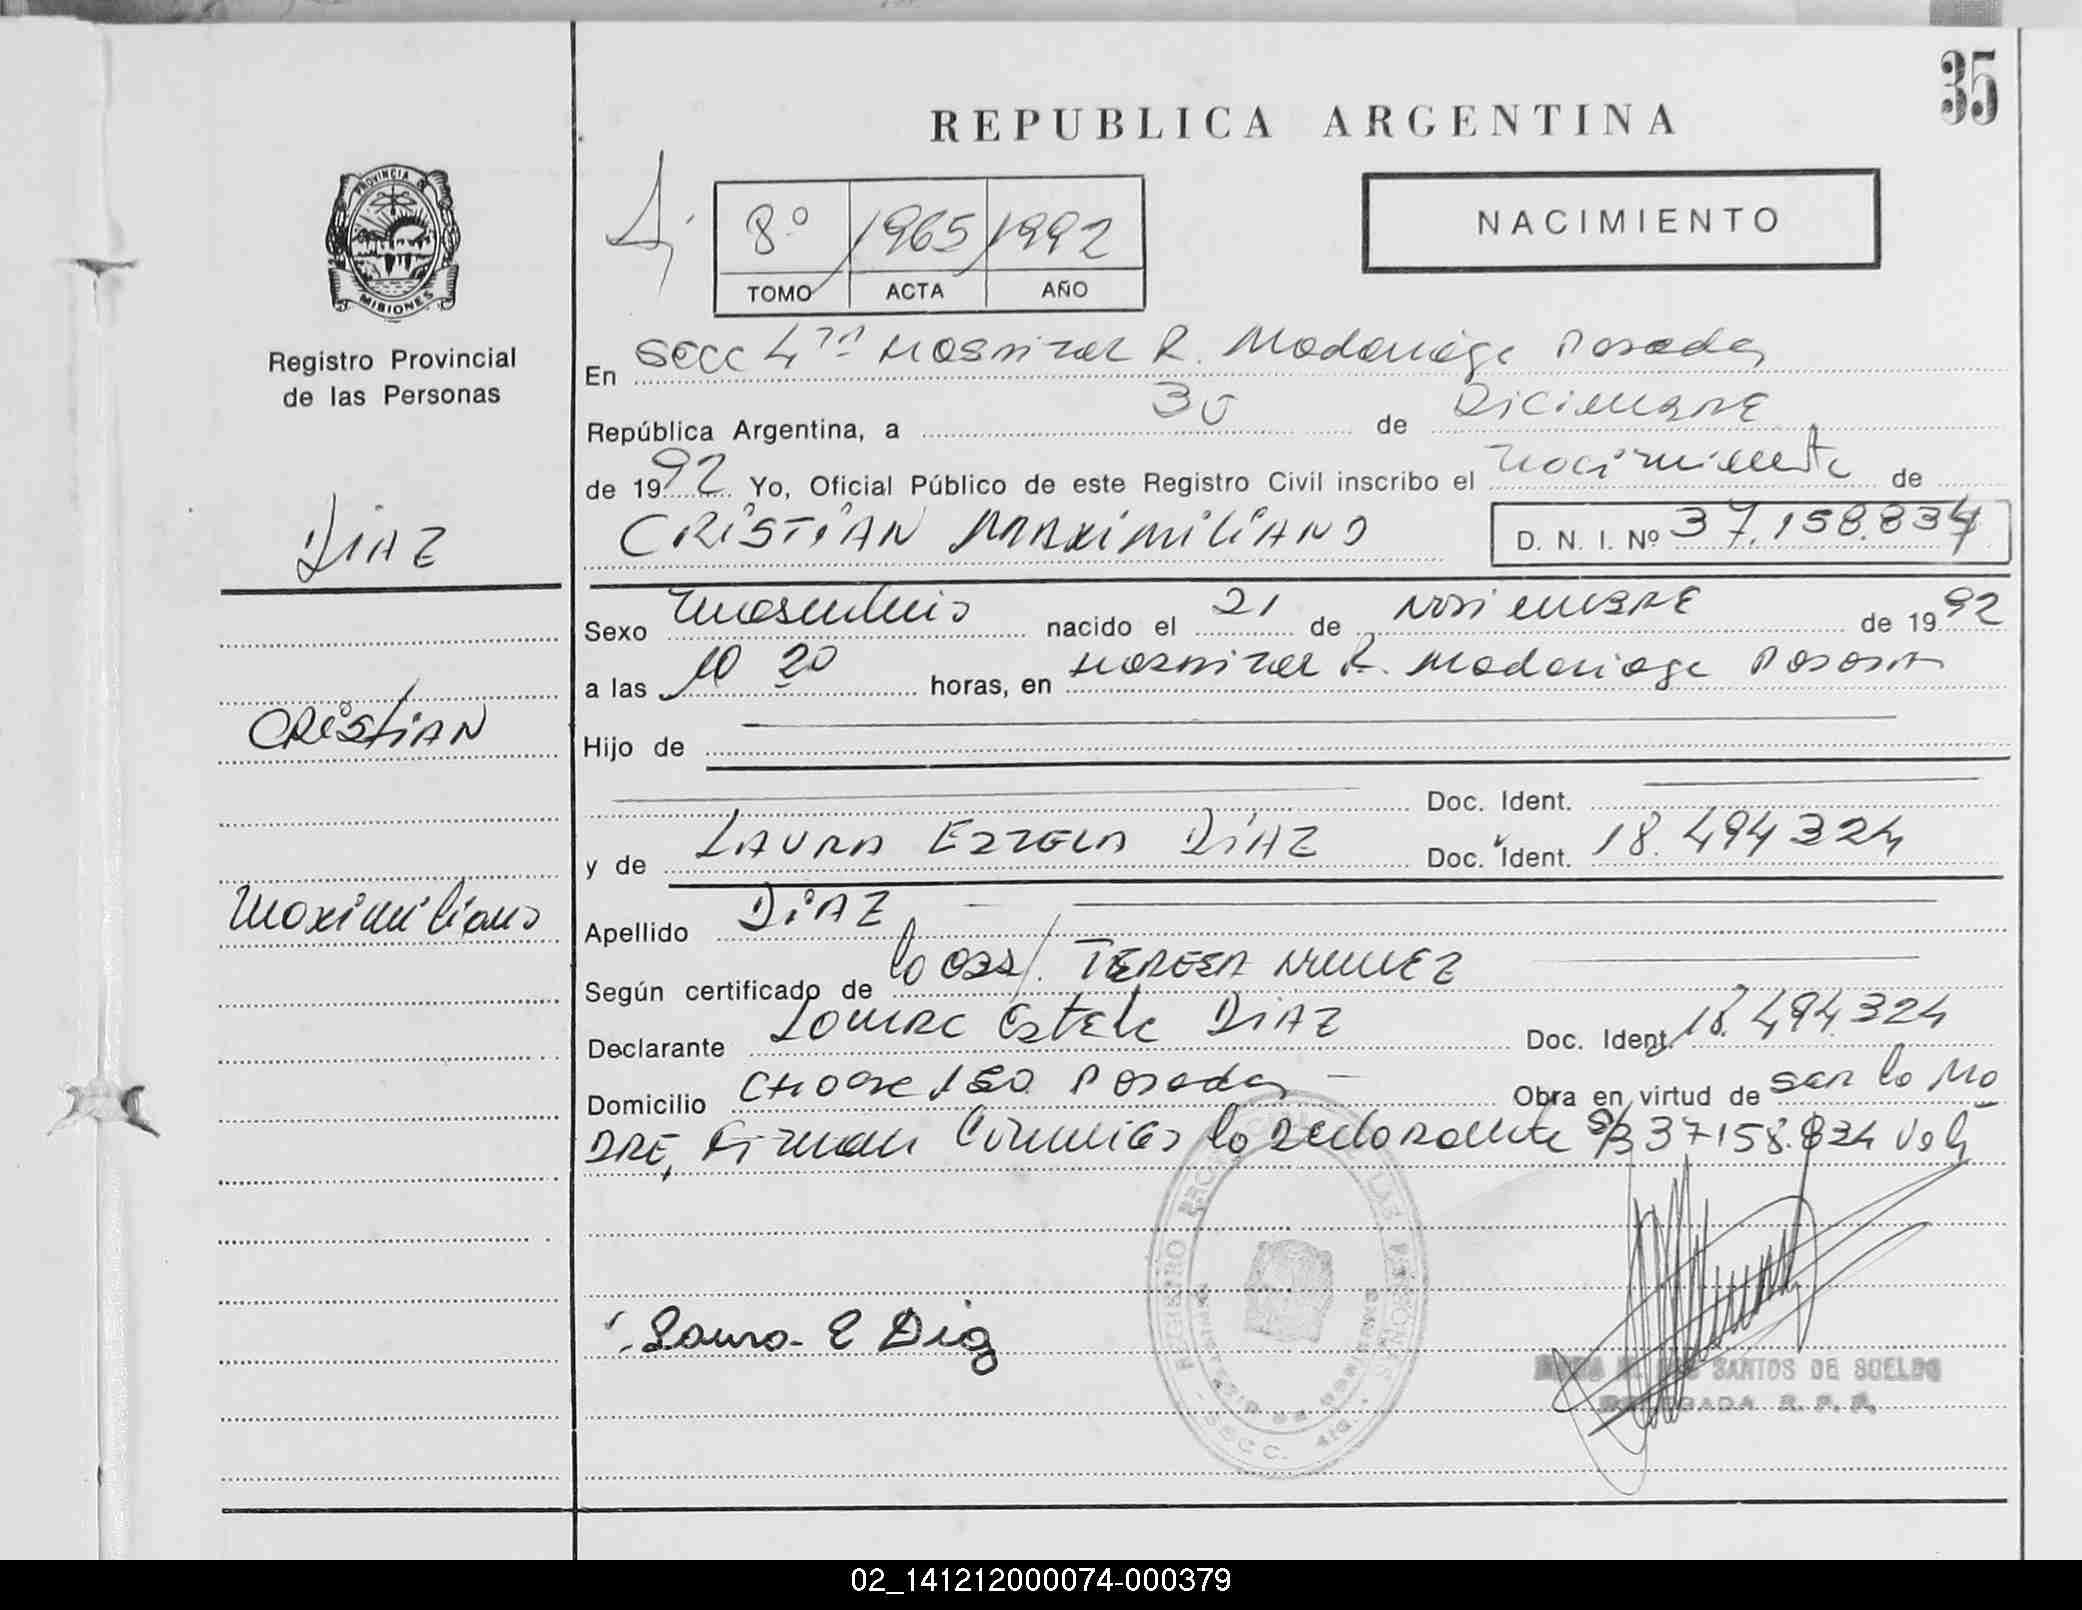 35
REPUBLICA ARGENTINA
PROVINCIA DE
MISIONES
Registro Provincial
de las Personas
8º 1965 1992
TOMO ACTA AÑO
NACIMIENTO
En Secc 4ta Hospital R. Madariaga Posadas
República Argentina, a 30 de Diciembre
de 1992 Yo, Oficial Público de este Registro Civil inscribo el nacimiento de
CRISTIAN MAXIMILIANO D. N. I. Nº 37.158.834
DIAZ
Sexo masculino nacido el 21 de Noviembre de 1992
a las 10 20 horas, en Hospital R. Madariaga Posadas
CRISTIAN
Hijo de
Doc. Ident.
y de LAURA ESTELA DIAZ Doc. Ident. 18.494324
Maximiliano
Apellido DIAZ
Según certificado de la obst. TERESA NUNEZ
Declarante Laura Estela DIAZ Doc. Ident. 18.494.324
Domicilio 180 Posadas Obra en virtud de ser la Ma
DRE, Firman Conmigo la declarante S/B 37158.834 Vale
Laura E Diaz
REGISTRO PROVINCIAL DE LAS PERSONAS
MINISTERIO DE GOBIERNO
SECC. 4ta.
SANTOS DE SUELDO
DELEGADA R. P. P.
02_141212000074-000379